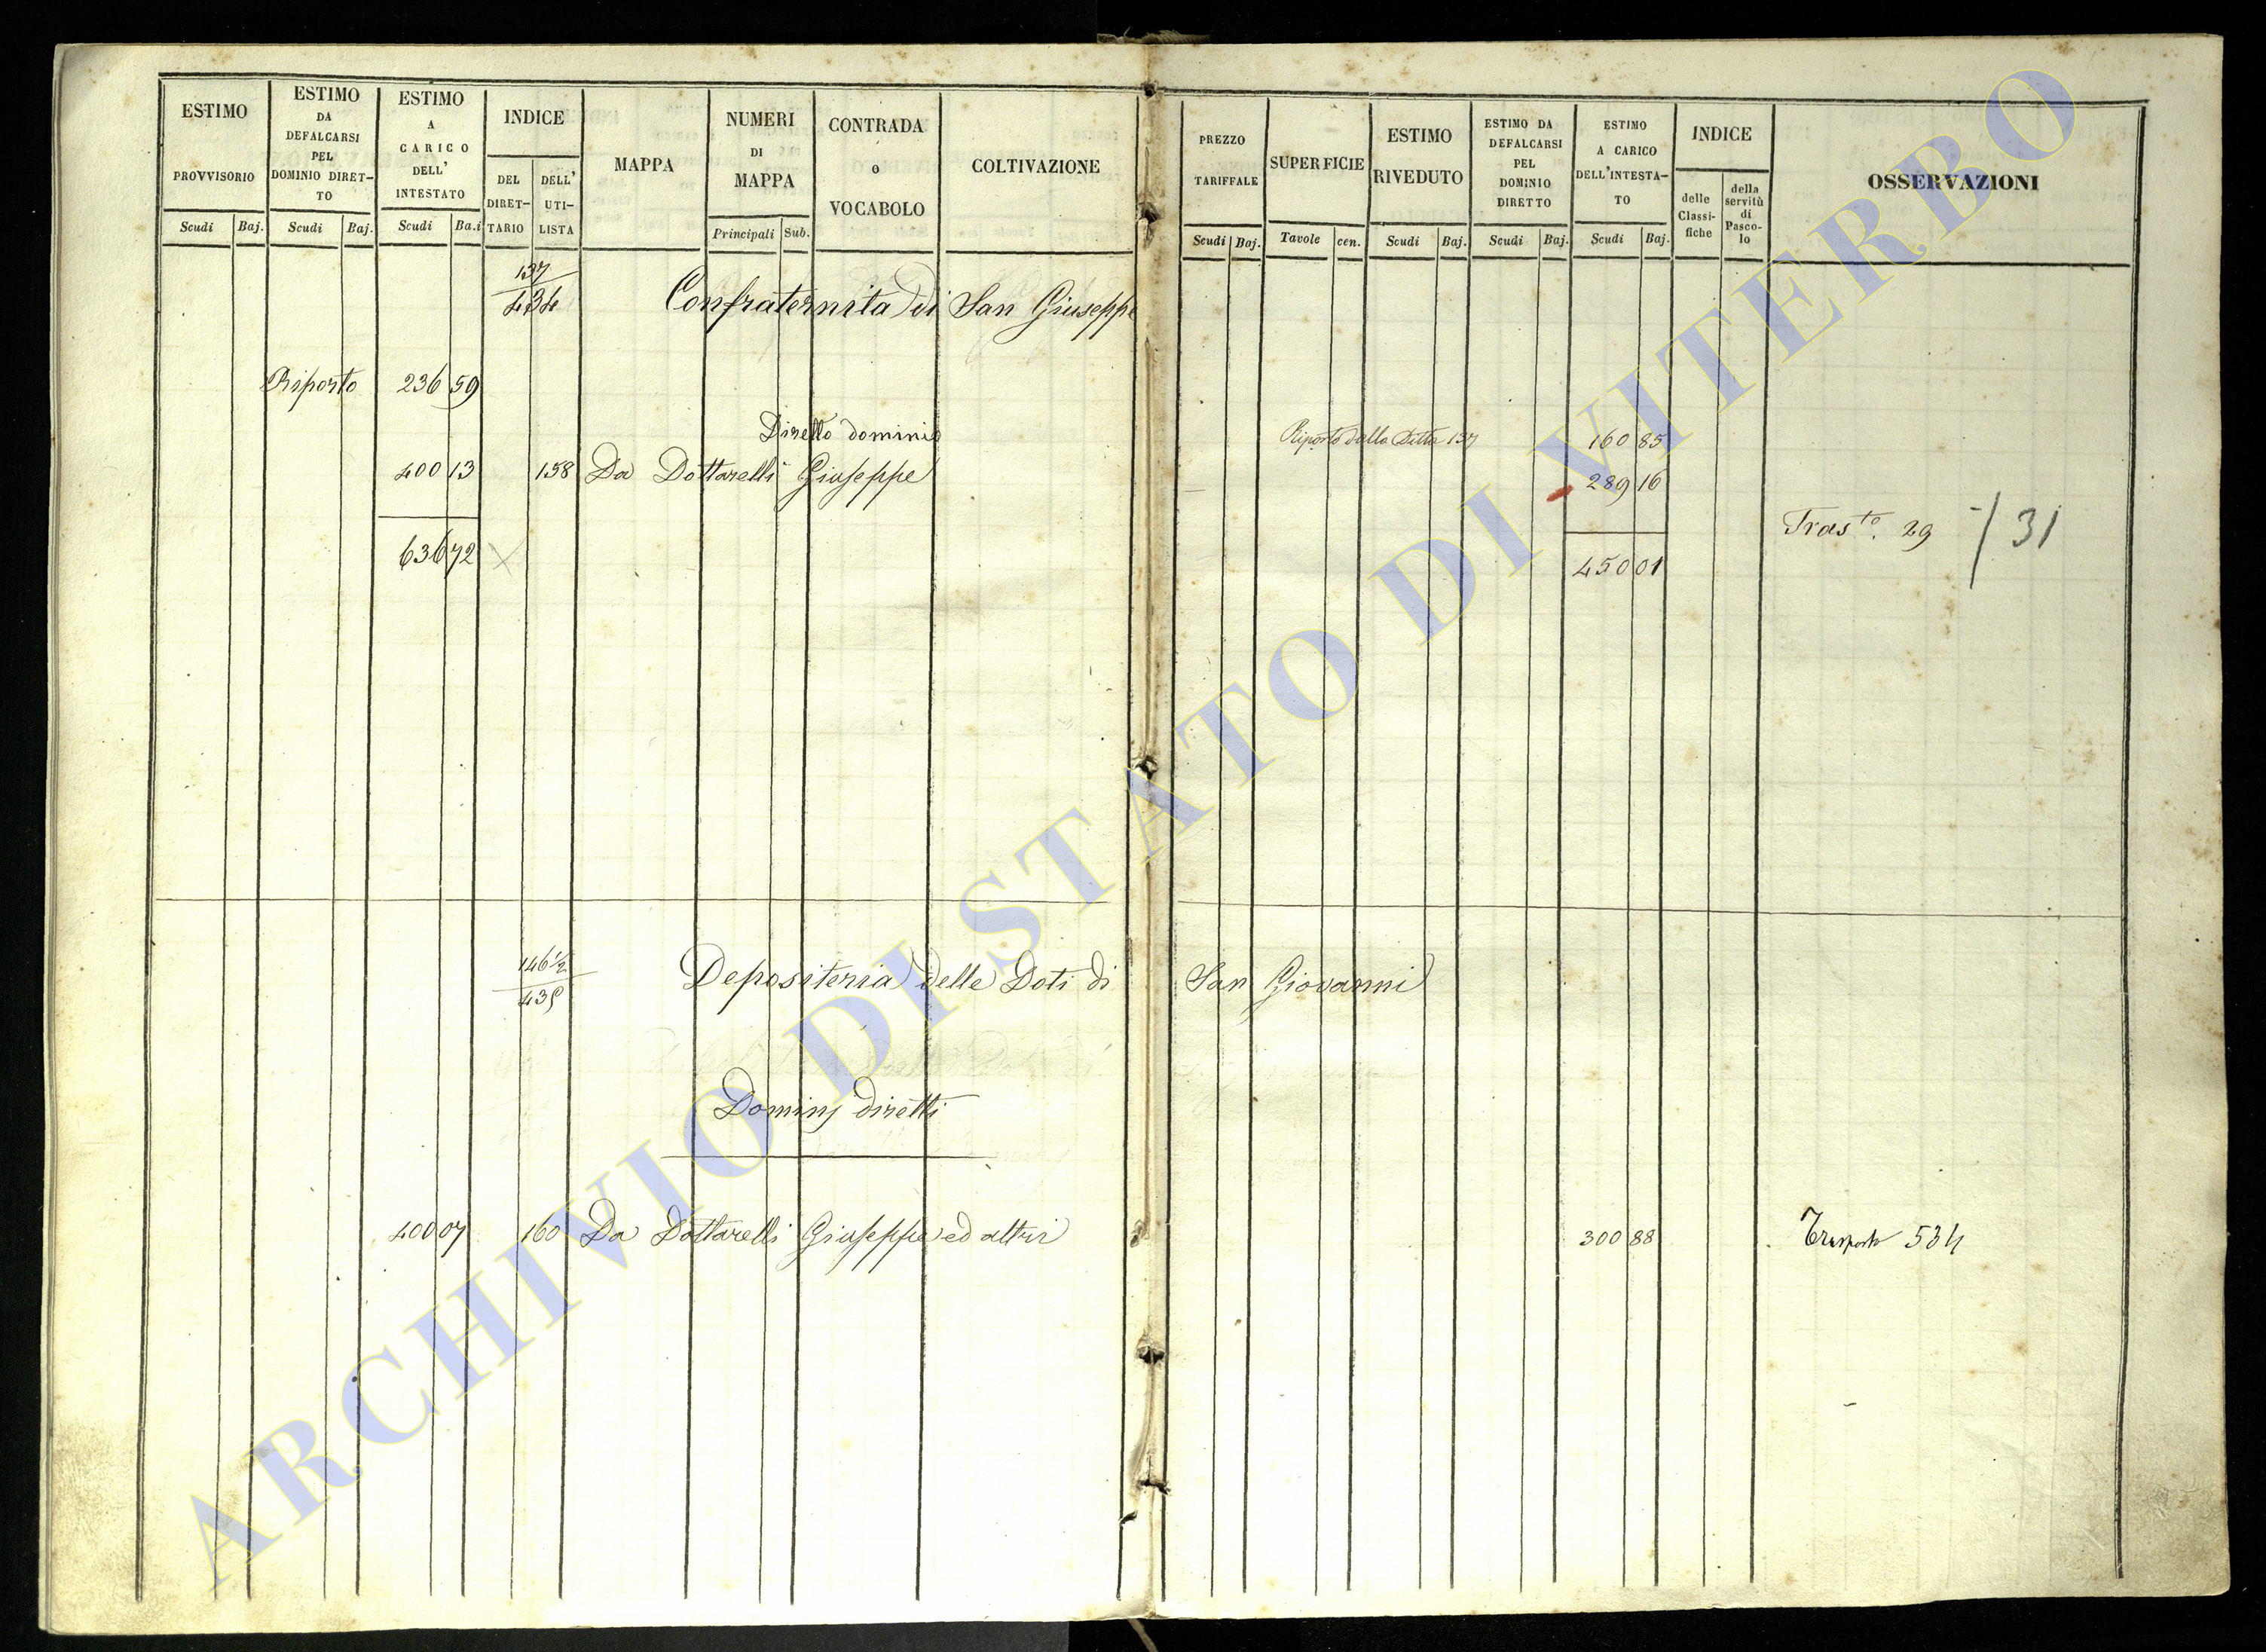 ESTIMO PROVVISORIO
Scudi Baj.
ESTIMO DA DEFALCARSI PEL DOMINIO DIRET-TO
Scudi Baj.
ESTIMO A CARICO DELL' INTESTATO
Scudi Ba.i
INDICE
DEL DIRET-TARIO
DELL' UTI-LISTA
MAPPA
NUMERI DI MAPPA
Principali Sub.
CONTRADA o VOCABOLO
COLTIVAZIONE
PREZZO TARIFFALE
Scudi Baj.
SUPERFICIE
Tavole cen.
ESTIMO RIVEDUTO
Scudi Baj.
ESTIMO DA DEFALCARSI PEL DOMINIO DIRETTO
Scudi Baj.
ESTIMO A CARICO DELL'INTESTA-TO
Scudi Baj.
INDICE
delle Classi-fiche
della servitù di Pasco-lo
OSSERVAZIONI
137
434
Confraternita di San Giuseppe
Riporto 236 59
Diretto dominio
Riporto dalla Ditta 137 160 85
400 13 158 Da Dottarelli Giuseppe
289 16
636 72
450 01
Trasto. 29 31
146½
435
Depositeria delle Doti di San Giovanni
Dominj diretti
400 07 160 Da Dottarelli Giuseppe ed altri 300 88 Trasporto 534
ARCHIVIO DI STATO DI VITERBO